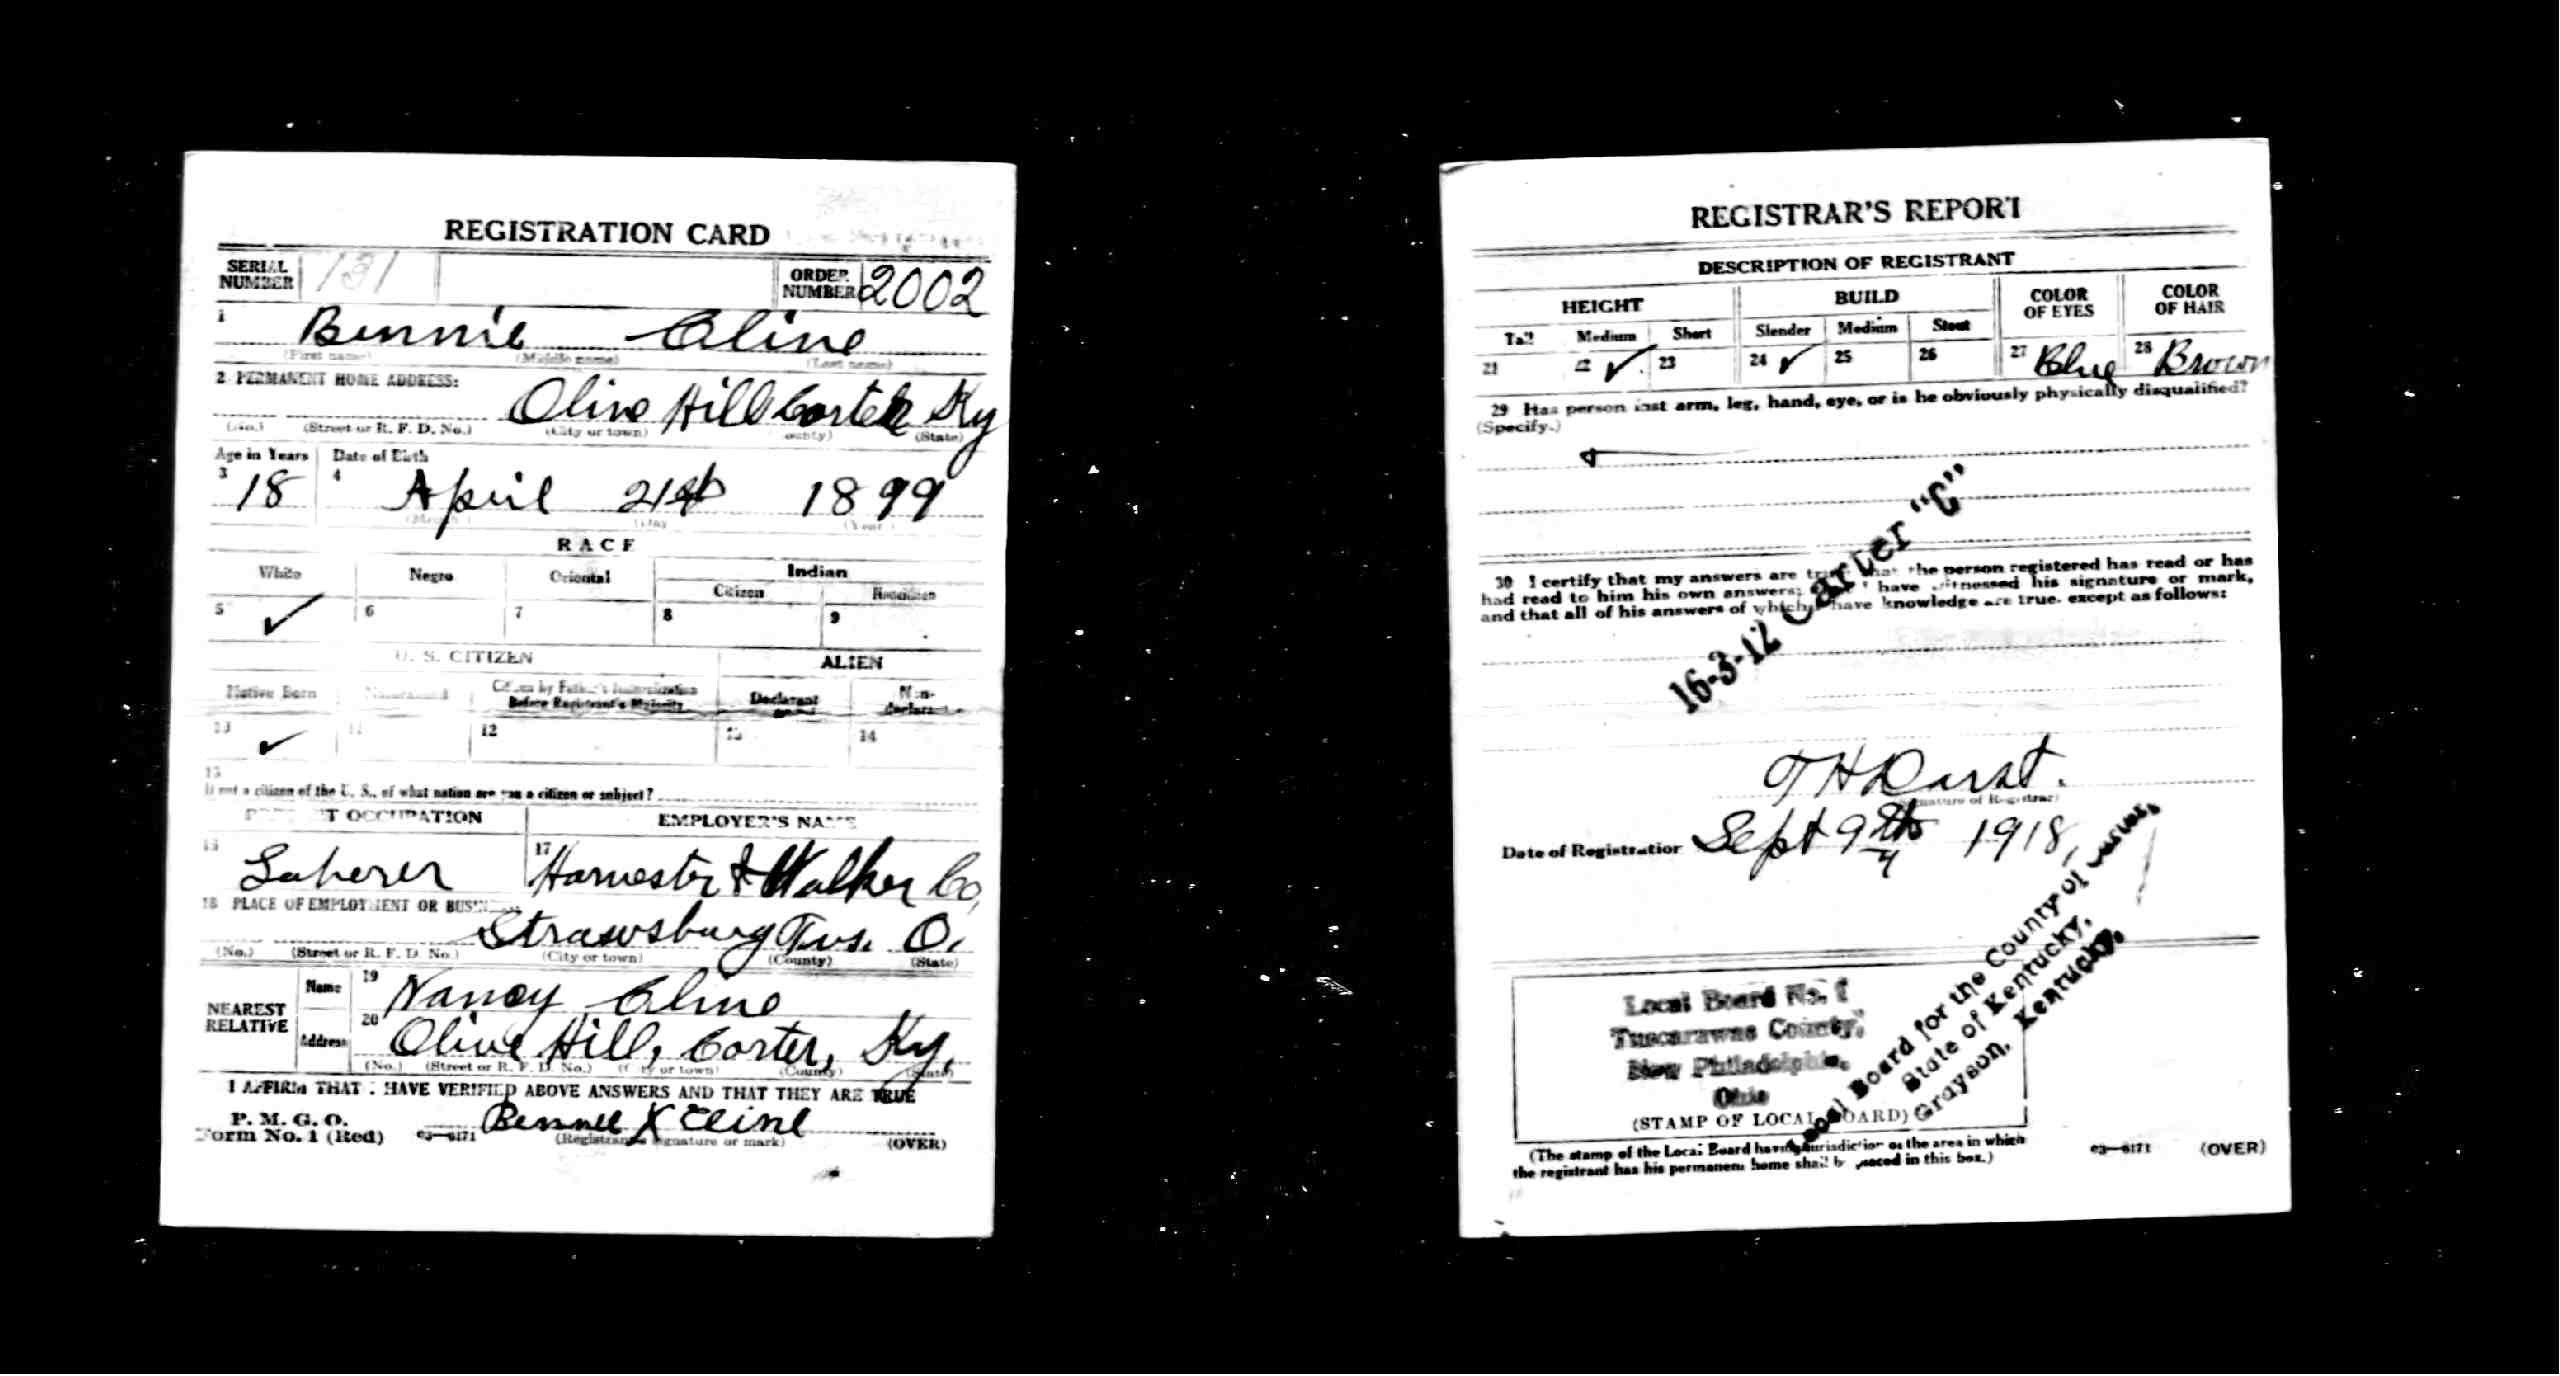 REGISTRATION CARD
SERIAL NUMBER 131 ORDER NUMBER 2002
1 Bennie Cline
(First name) (Middle name) (Last name)
2 PERMANENT HOME ADDRESS:
Olive Hill Carter Ky
(No.) (Street or R. F. D. No.) (City or town) (County) (State)
Age in Years Date of Birth
3 18 4 April 21st 1899
(Month) (Day) (Year)
RACE
White Negro Oriental Indian
Citizen Noncitizen
5 ✓ 6 7 8 9
U. S. CITIZEN ALIEN
Native Born Naturalized Citizen by Father's Naturalization Before Registrant's Majority Declarant Non-declarant
10 ✓ 11 12 13 14
15
If not a citizen of the U. S., of what nation are you a citizen or subject?
PRESENT OCCUPATION EMPLOYER'S NAME
16 Laberer 17 Harvester & Walker Co,
18 PLACE OF EMPLOYMENT OR BUSINESS
Strawsburg Tus. O.
(No.) (Street or R. F. D. No.) (City or town) (County) (State)
NEAREST RELATIVE
Name 19 Nancy Cline
Address 20 Olive Hill, Carter, Ky,
(No.) (Street or R. F. D. No.) (City or town) (County) (State)
I AFFIRM THAT I HAVE VERIFIED ABOVE ANSWERS AND THAT THEY ARE TRUE
P. M. G. O.
Form No. 1 (Red) 03—6171 Bennie X Cline
(Registrant's signature or mark) (OVER)
REGISTRAR'S REPORT
DESCRIPTION OF REGISTRANT
HEIGHT BUILD COLOR OF EYES COLOR OF HAIR
Tall Medium Short Slender Medium Stout
21 22 ✓ 23 24 ✓ 25 26 27 Blue 28 Brown
29 Has person lost arm, leg, hand, eye, or is he obviously physically disqualified?
(Specify.)
16-3-12 Carter "C"
30 I certify that my answers are true; that the person registered has read or has
had read to him his own answers; that I have witnessed his signature or mark,
and that all of his answers of which I have knowledge are true, except as follows:
T H Durst.
(Signature of Registrar)
Date of Registration Sept 9th 1918,
Local Board No. 1
Tuscarawas County,
New Philadelphia,
Ohio
(STAMP OF LOCAL BOARD)
Local Board for the County of Carter,
State of Kentucky,
Grayson, Kentucky.
(The stamp of the Local Board having jurisdiction of the area in which
the registrant has his permanent home shall be placed in this box.)
03—6171 (OVER)